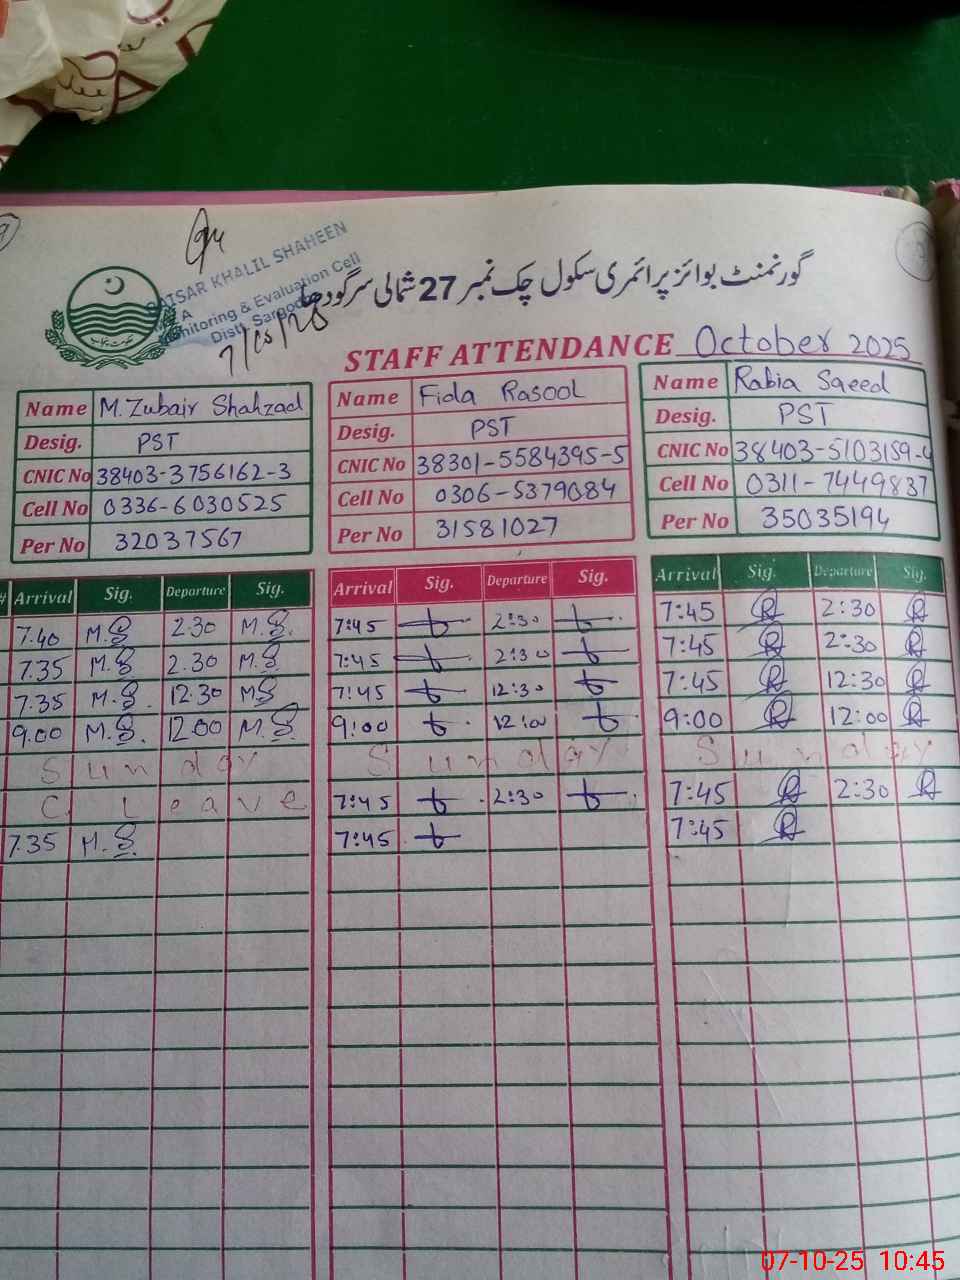 QAISAR KHALIL SHAHEEN
M E A
Monitoring & Evaluation Cell
Distt. Sargodha
7/10/25
گورنمنٹ بوائز پرائمری سکول چک نمبر 27 شمالی سرگودھا
STAFF ATTENDANCE October 2025
Name M.Zubair Shahzad Name Fida Rasool Name Rabia Saeed
Desig. PST Desig. PST Desig. PST
CNIC No 38403-3756162-3 CNIC No 38301-5584395-5 CNIC No 38403-5103159-4
Cell No 0336-6030525 Cell No 0306-5379084 Cell No 0311-7449837
Per No 32037567 Per No 31581027 Per No 35035194
# Arrival Sig. Departure Sig. Arrival Sig. Departure Sig. Arrival Sig. Departure Sig.
7.40 M.S 2.30 M.S. 7:45 2:30 7:45 2:30
7.35 M.S 2.30 M.S 7:45 2:30 7:45 2:30
7.35 M.S. 12.30 MS 7:45 12:30 7:45 12:30
9.00 M.S. 12.00 M.S. 9:00 12:00 9:00 12:00
Sunday Sunday Sunday
C. Leave 7:45 2:30 7:45 2:30
7.35 M.S. 7:45 7:45
07-10-25 10:45